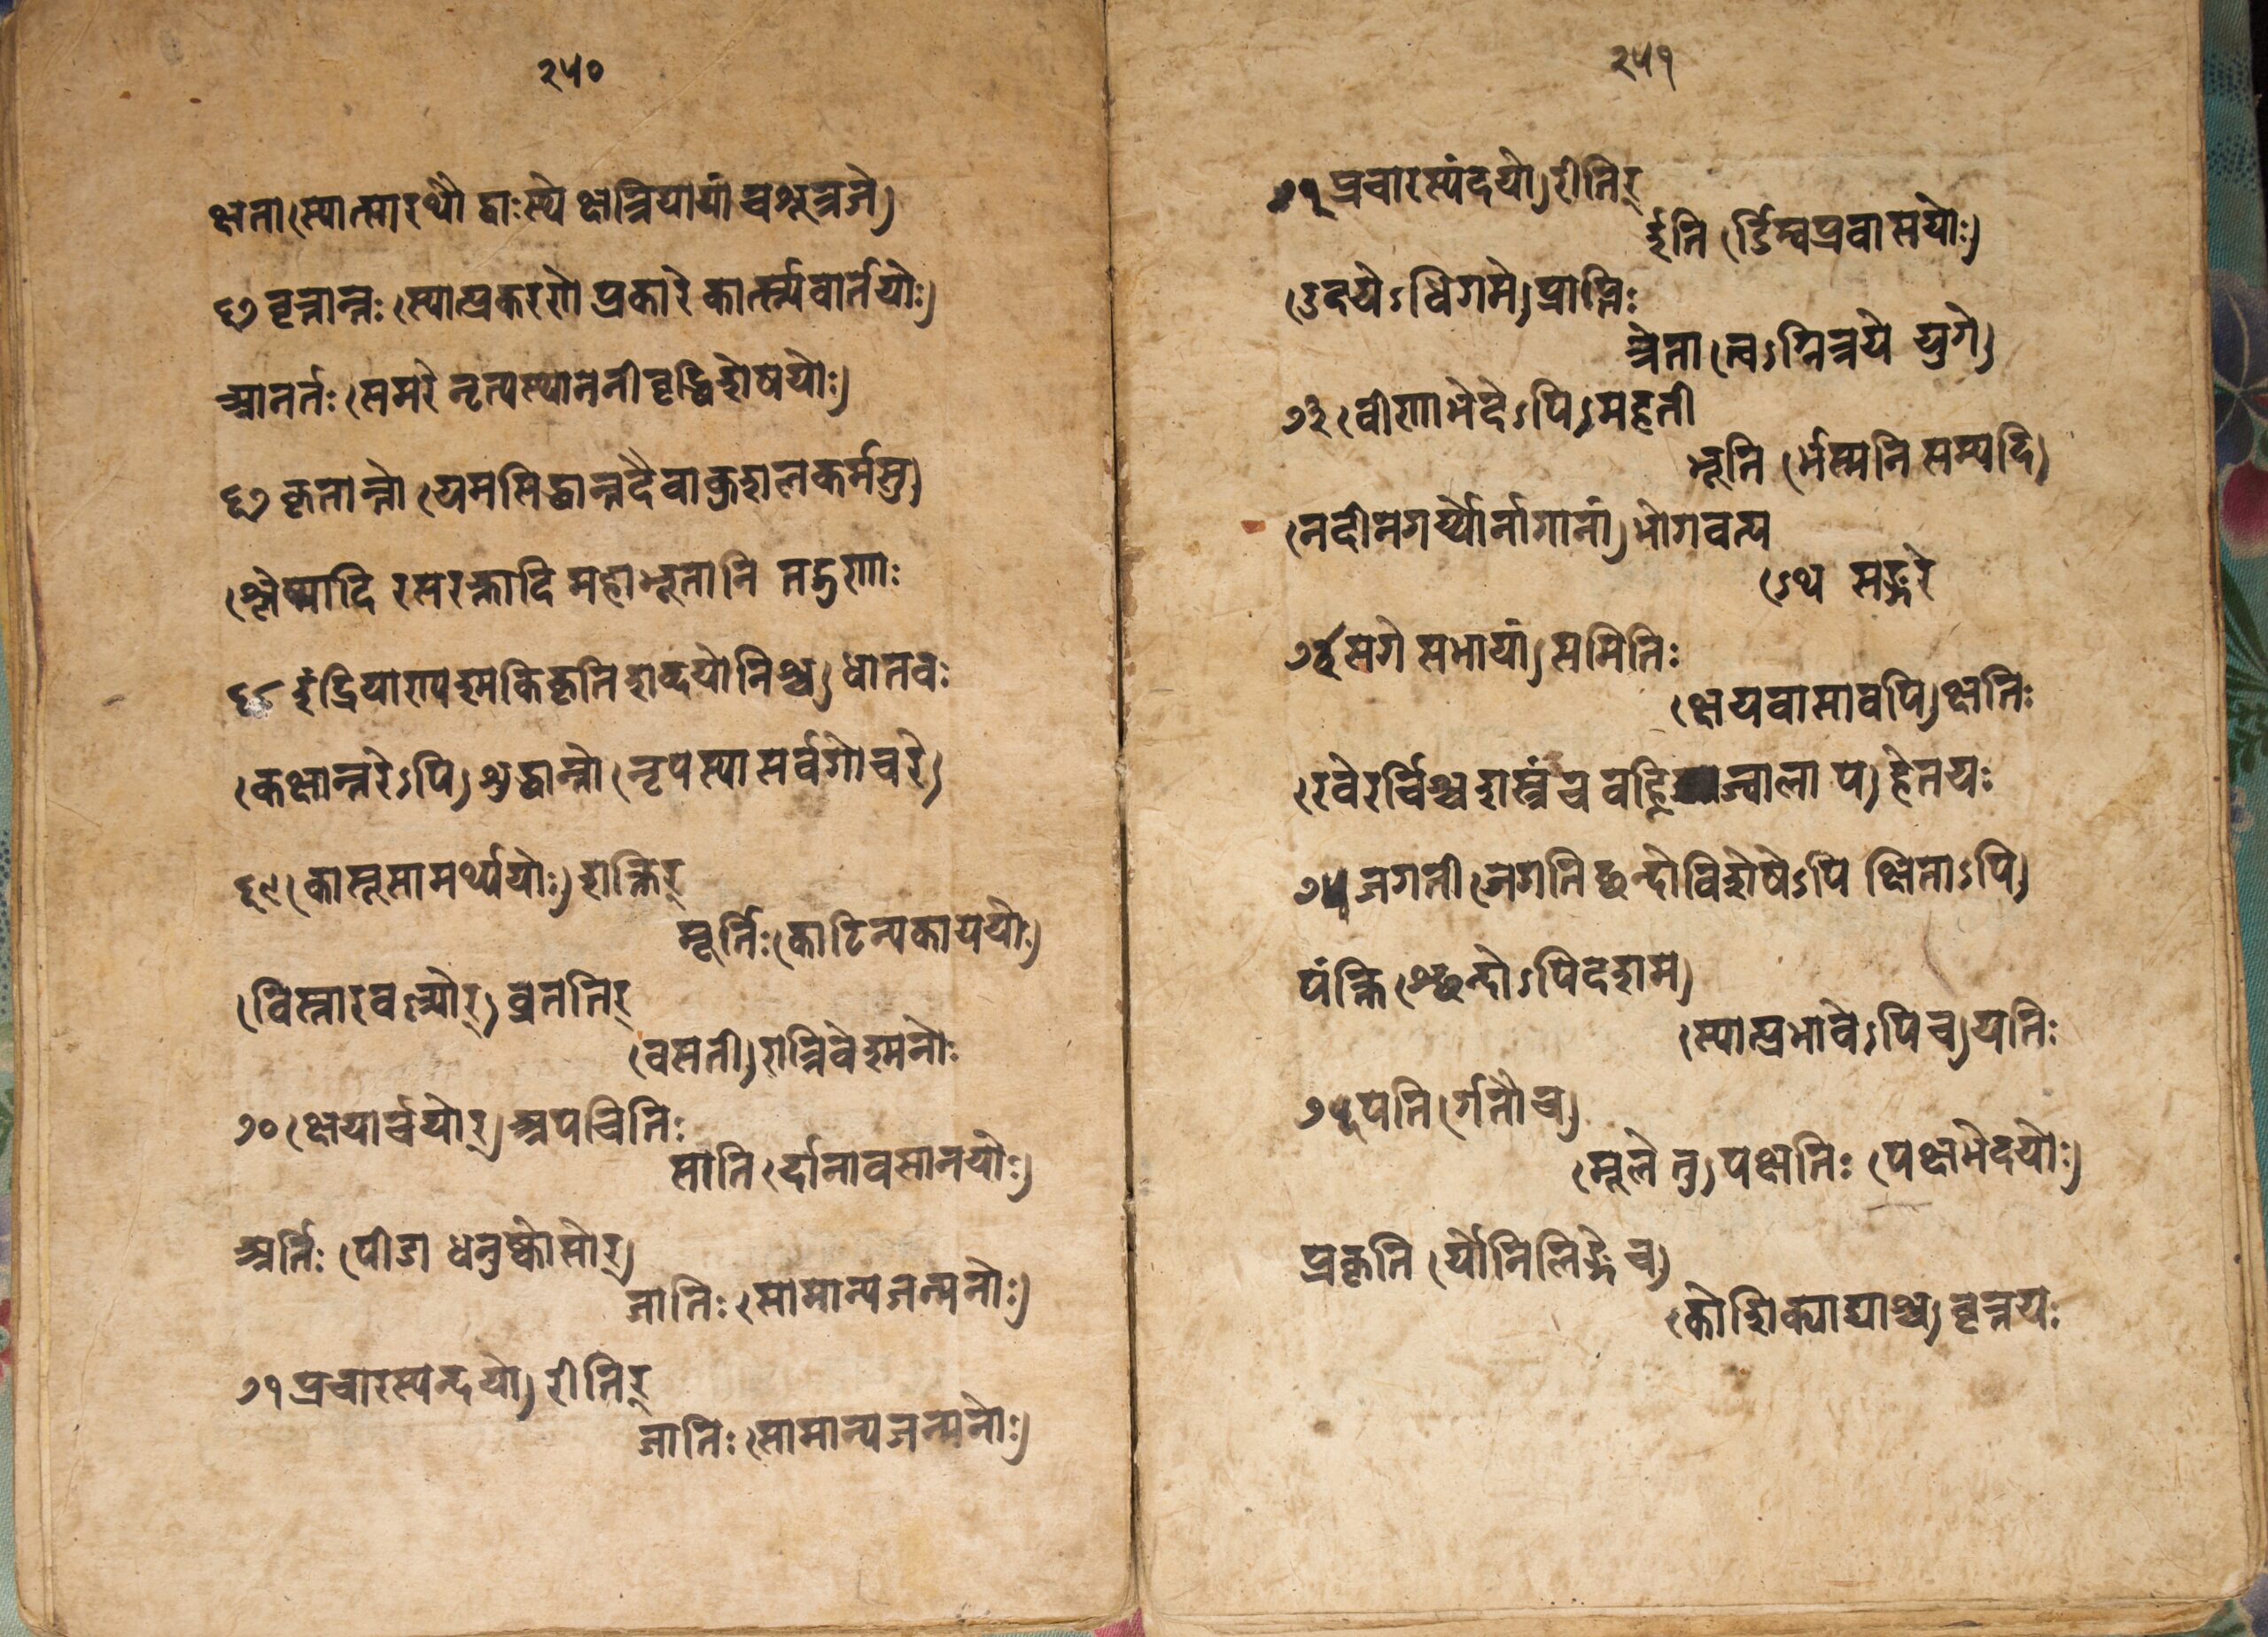 २५०
क्षत्ता(स्यात्सारथौ द्वाःस्थे क्षत्रियायां च शूद्रजे)
६७ वृत्तान्तः(स्यात्प्रकरणे प्रकारे कार्त्स्न्यवार्तयोः)
आनर्तः(समरे नृत्यस्थाननीवृद्विशेषयोः)
६७ कृतान्तो(यमसिद्धान्तदैवाकुशलकर्मसु)
(श्लेष्मादि रसरक्तादि महाभूतानि तद्गुणाः
६८ इंद्रियाण्यश्मविकृति शब्दयोनिश्च) धातवः
(कक्षान्तरेऽपि) शुद्धान्तो(नृपस्यासर्वगोचरे)
६९(कासूसामर्थ्ययोः) शक्तिर्
मूर्तिः(काठिन्यकाययोः)
(विस्तारवल्ल्योर्) व्रततिर्
(वसती) रात्रिवेश्मनोः
७०(क्षयार्चयोर्) अपचितिः
साति(र्दानावसानयोः)
अर्तिः(पीडा धनुष्कोट्योर्)
जातिः(सामान्यजन्मनोः)
७१ प्रचारस्यन्दयो) रीतिर्
जातिः(सामान्यजन्मनोः)
२५१
७१ प्रचारस्यंदयो) रीतिर्
ईति(र्डिम्बप्रवासयोः)
(उदयेऽधिगमे) प्राप्तिः
त्रेता(त्वऽग्नित्रये युगे)
७३(वीणाभेदेऽपि) महती
भूति(र्भस्मनि सम्पदि)
(नदीनगर्य्योर्नागानां) भोगवत्य
(ऽथ सङ्गरे
७४ सगे सभायां) समितिः
(क्षयवासावपि) क्षितिः
(रवेरर्चिश्च शस्त्रं च वह्निज्वाला च) हेतयः
७५ जगती(जगति छन्दोविशेषेऽपि क्षिताऽपि)
पंक्ति(श्छन्दोऽपि दशम)
(स्यात्प्रभावेऽपि च)यतिः
७५ पति(र्गतौ च)
(मूले तु) पक्षतिः (पक्षभेदयोः)
प्रकृति(र्योनिलिङ्गे च)
(कौशिक्याद्याश्च) वृत्तयः